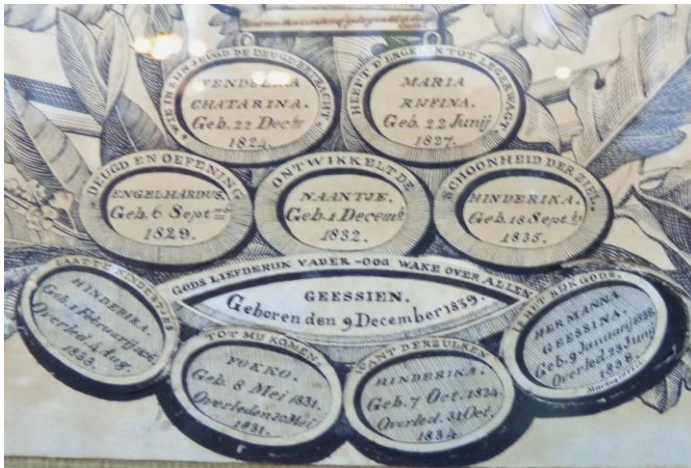 WIE IN ZIJN JEUGD DE DEUGD BETRACHT
VENDELINA
CHATARINA.
Geb. 22 Dec.
1824.
HEEFT D'ENGELEN TOT LEGERWAGT
MARIA
RUFINA.
Geb. 22 Junij
1827.
DEUGD EN OEFENING
ENGELHARDUS.
Geb. 6 Sept
1829.
ONTWIKKELT DE
NAANTJE.
Geb. 1 Decemb
1832.
SCHOONHEID DER ZIEL.
HINDERIKA.
Geb. 18 Sept.
1835.
GODS LIEFDERIJK VADER-OOG WAKE OVER ALLEN
GEESSIEN.
Geboren den 9 December 1839.
LAAT DE KINDERTJES
HINDERIKA.
Geb. 1 Februarij
Overled. 4 Aug.
1833.
TOT MIJ KOMEN,
FOKKO.
Geb. 8 Mei 1831.
Overleden 20 Mei
1831.
WANT DERZULKEN
HINDERIKA.
Geb. 7 Oct. 1824.
Overled. 31 Oct.
1834.
IS HET RIJK GODS.
HERMANNA
GEESSINA.
Geb. 9 Januarij 1838.
Overled. 23 Junij
1838.